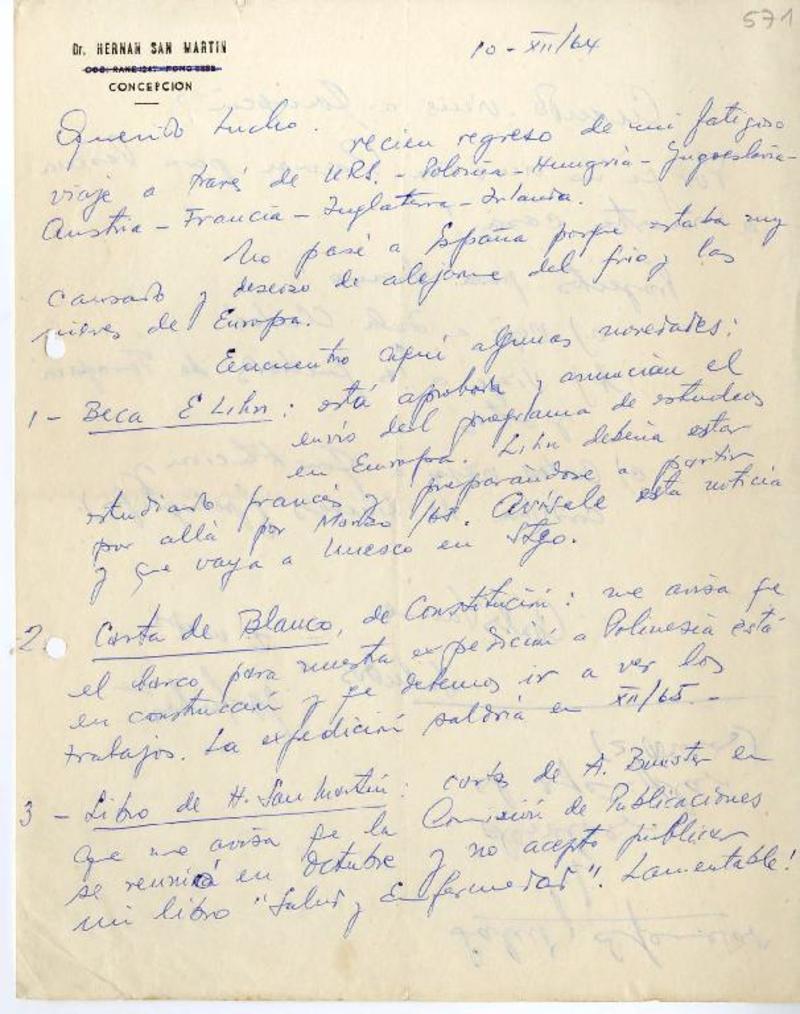 571
Dr. HERNAN SAN MARTIN
CONCEPCION
10-XII/64
Querido Lucho. recien regreso de mi fatigoso
viaje a través de URS. - Polonia - Hungria - Yugoeslavia -
Austria - Francia - Inglaterra - Irlanda.
No pasé a España porque estaba muy
cansado y deseoso de alejarme del frio y las
nieves de Europa.
Encuentro aquí algunas novedades:
1 - Beca E Lihn: está aprobada y anuncian el
envío del programa de estudios
en Europa. Lihn debería estar
estudiando francés y preparándose a partir
por allá por Marzo /65. Avísale esta noticia
y que vaya a Unesco en Stgo.
2 - Carta de Blanco, de Constitución: me avisa qe
el barco para nuestra expedición a Polinesia está
en construcción y qe debemos ir a ver los
trabajos. La expedición saldría en XII/65.-
3 - Libro de H. San Martín: carta de A. Bunster en
que me avisa qe la Comisión de Publicaciones
se reunió en Octubre y no aceptó publicar
mi libro "Salud y Enfermedad". Lamentable!